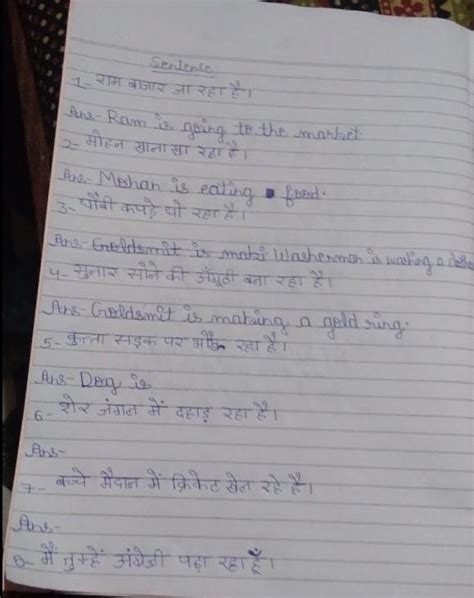 Sentence
1- राम बाजार जा रहा है।
Ans- Ram is going to the market
2- मोहन खाना खा रहा है।
Ans- Mohan is eating food.
3- धोबी कपड़े धो रहा है।
Ans- Goldsmit is maki Washerman is
4- सुनार सोने की अँगूठी बना रहा है।
Ans- Goldsmit is making a gold ring.
5- कुत्ता सड़क पर भौंक रहा है।
Ans- Dog is
6- शेर जंगल में दहाड़ रहा है।
Ans-
7- बच्चे मैदान में क्रिकेट खेल रहे हैं।
Ans-
8- मैं तुम्हें अंग्रेजी पढ़ा रहा हूँ।